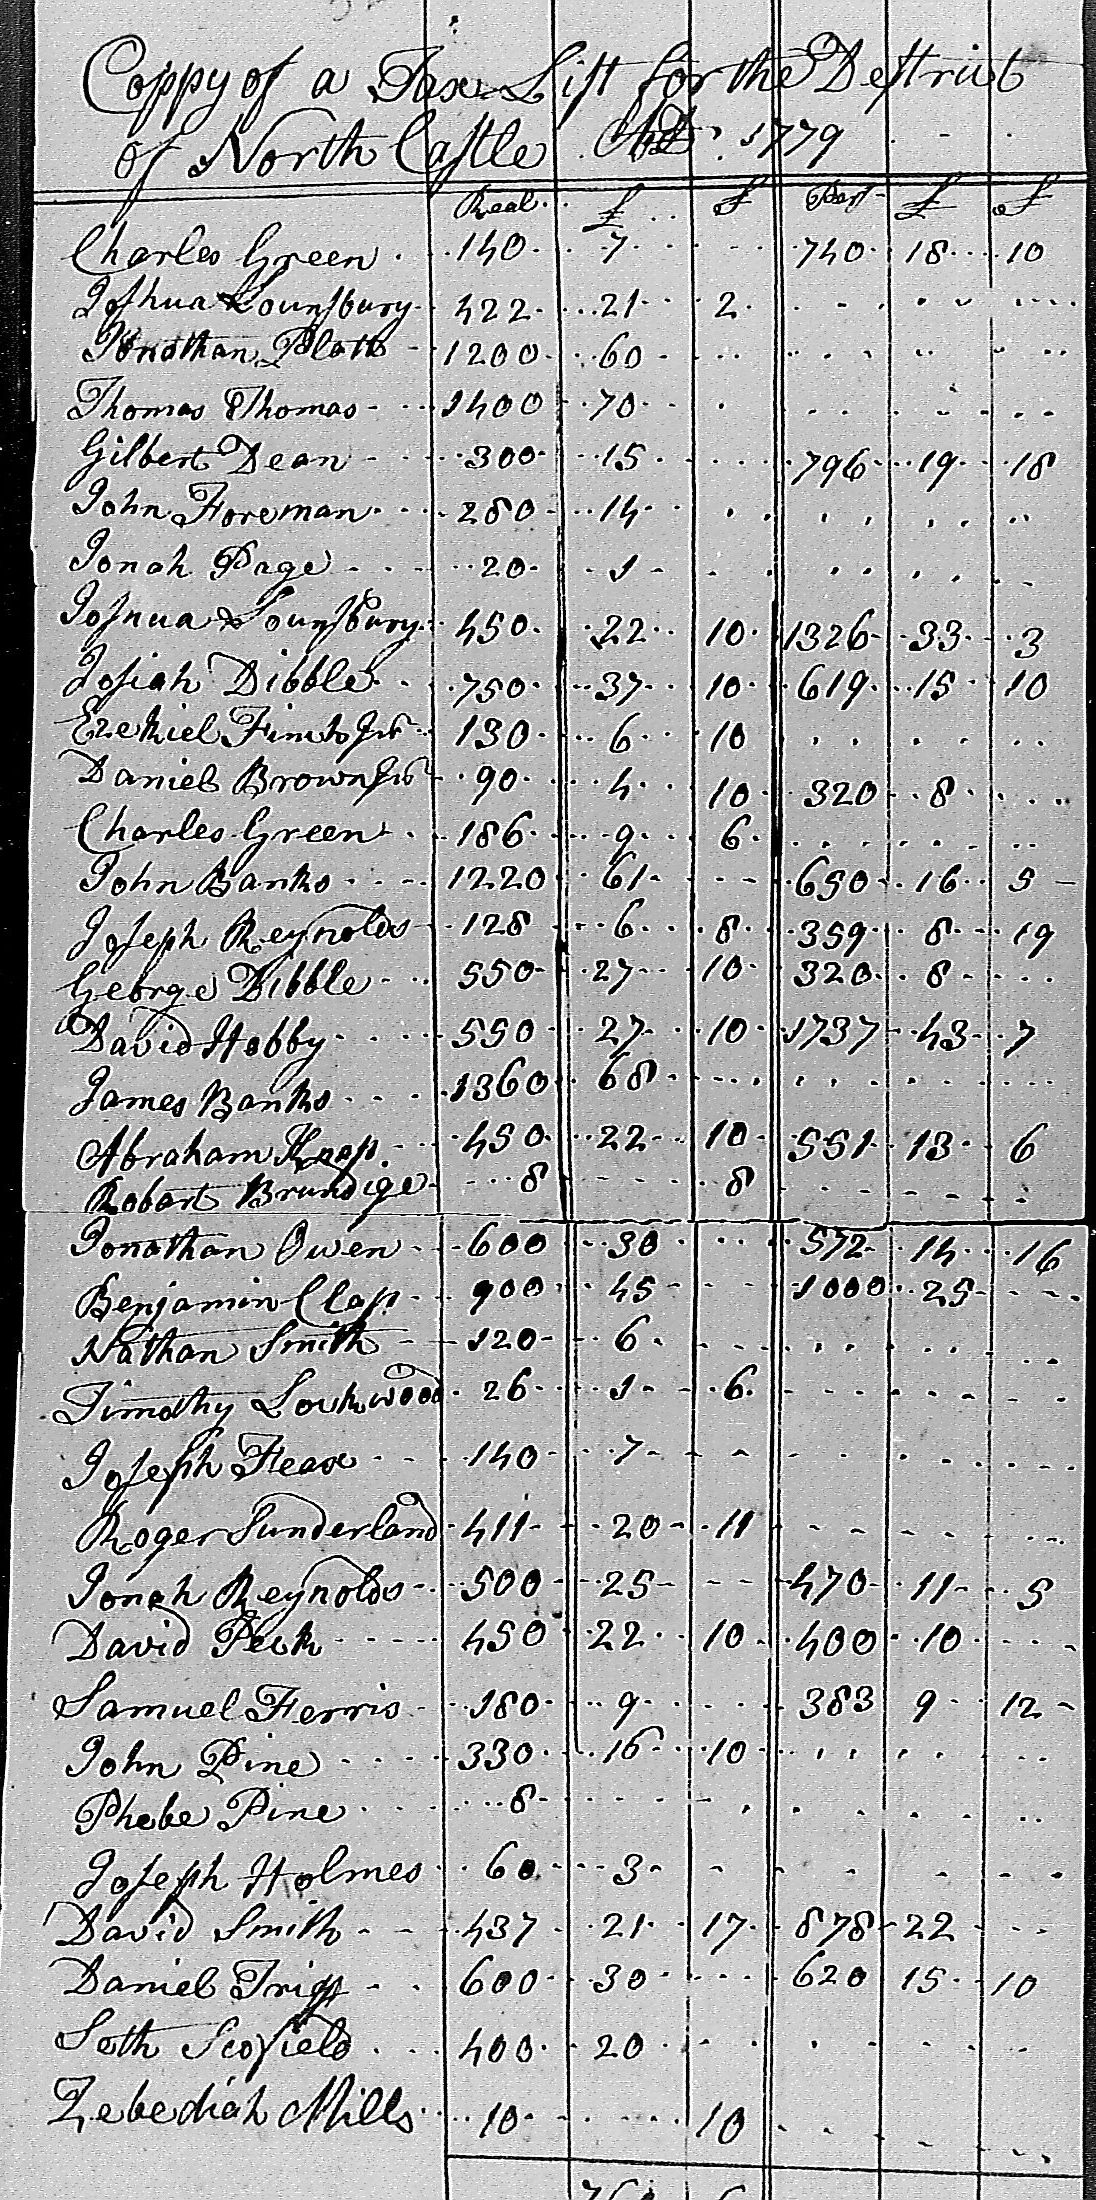 Coppy of a Tax List for the Destrict
of North Castle AD. 1779
Real £ £ Pers £ £
Charles Green 140 7 740 18 10
Joshua Lounsbury 422 21 2
Jonathan Platt 1200 60
Thomas Thomas 1400 70
Gilbert Dean 300 15 796 19 18
John Foreman 280 14
Jonah Page 20 1
Joshua Lounsbury 450 22 10 1326 33 3
Josiah Dibble 750 37 10 619 15 10
Ezekiel Finch Jur 130 6 10
Daniel Brown Jur 90 4 10 320 8
Charles Green 186 9 6
John Banks 1220 61 650 16 5
Joseph Reynolds 128 6 8 359 8 19
George Dibble 550 27 10 320 8
David Hobby 550 27 10 1737 43 7
James Banks 1360 68
Abraham Knap 450 22 10 551 13 6
Robart Brundige 8 8
Jonathan Owen 600 30 572 14 16
Benjamin Clap 900 45 1000 25
Nathan Smith 120 6
Timothy Lockwood 26 1 6
Joseph Feax 140 7
Roger Sunderland 411 20 11
Jonah Reynolds 500 25 470 11 5
David Peck 450 22 10 400 10
Samuel Ferris 180 9 383 9 12
John Pine 330 16 10
Phebe Pine 8
Joseph Holmes 60 3
David Smith 437 21 17 878 22
Daniel Trip 600 30 620 15 10
Seth Scofield 400 20
Zebediah Mills 10 10